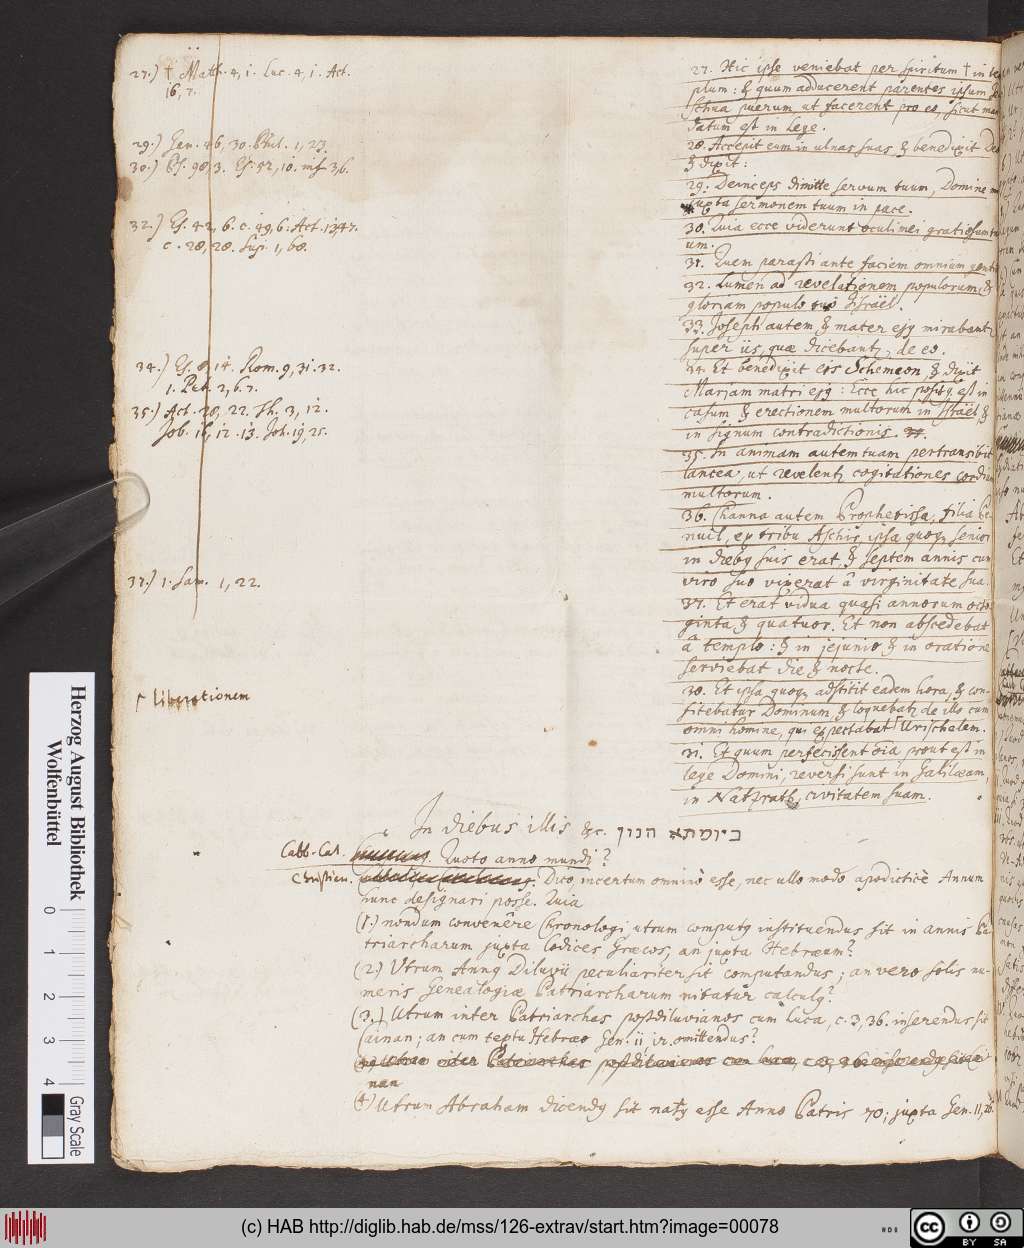 27.) † Matth. 4, 1. Luc. 4, 1. Act.
16, 7.
29.) Gen. 46, 30. Phil. 1, 23.
30.) Ps. 98, 3. Es. 52, 10. inf. 3, 6.
32.) Es. 42, 6. c. 49, 6. Act. 13, 47.
c. 28, 28. Sup. 1, 68.
34.) Es. 8, 14. Rom. 9, 31. 32.
1. Pet. 2, 6. 7.
35.) Act. 28, 22. Th. 3, 12.
Job. 16, 12. 13. Joh. 19, 25.
37.) 1. Sam. 1, 22.
liberationem
27. Hic ipse veniebat per spiritum † in te
plum: & quum adducerent parentes ipsum
puerum, ut facerent pro eo, sicut man
datum est in Lege.
28. Accepit eum in ulnas suas, & benedixit De
& dixit:
29. Deinceps dimitte servum tuum, Domine
juxta sermonem tuum in pace.
30. Quia ecce viderunt oculi mei gratiosum tu
um.
31. Quem parasti ante faciem omnium genti
32. Lumen ad revelationem populorum, &
gloriam populo tuo Jisraël.
33. Joseph autem & mater ejq mirabantz
super iis, quæ dicebantz, de eo.
34. Et benedixit eos Schemeon, & dixit
Marjam matri ejq: Ecce hic positq est in
casum & erectionem multorum in Jisraël, &
in signum contradictionis.
35. In animam autem tuam pertransibit
lancea, ut revelentz cogitationes cordium
multorum.
36. Channa autem Prophetissa, filia Pe
nuil, ex tribu Aschir, ipsa quoq senior
in diebq suis erat & septem annis cum
viro suo vixerat â virginitate sua.
37. Et erat vidua quasi annorum octo
ginta & quatuor. Et non abscedebat
â templo: & in jejunio & in oratione
serviebat die & nocte.
38. Et ipsa quoq adstitit eadem hora, & con-
fitebatur Dominum, & loquebatz de illo cum
omni homine, qui expectabat Urischalem.
31. Et quum perfecissent oia prout est in
lege Domini, reversi sunt in Galilæam,
in Natzrath, civitatem suam.
In diebus illis &c. ביומתא הנון
Cabb. Cal. Quoto anno mundi?
Christian. Dico, incertum omninò esse, nec ullo modo apodicticè Annum
hunc designari posse. Quia
(1.) nondum convenêre Chronologi, utrum computq instituendus sit in annis Pa
triarcharum juxta Codices Græcos, an juxta Hebræum?
(2.) Utrum Annq Diluvii peculiariter sit computandus, an vero solis nu-
meris Genealogiæ Patriarcharum nitatur calculq?
(3.) Utrum inter Patriarchas postdiluvianos cum Luca, c. 3, 36. inserendus sit
Cainan; an cum textu Hebræo Gen. 11 omittendus?
nan
(4) Utrum Abraham dicendq sit natq esse Anno Patris 70; juxta Gen. 11, 26.
Herzog August Bibliothek
Wolfenbüttel
0 1 2 3 4
Gray Scale
(c) HAB http://diglib.hab.de/mss/126-extrav/start.htm?image=00078
cc BY SA